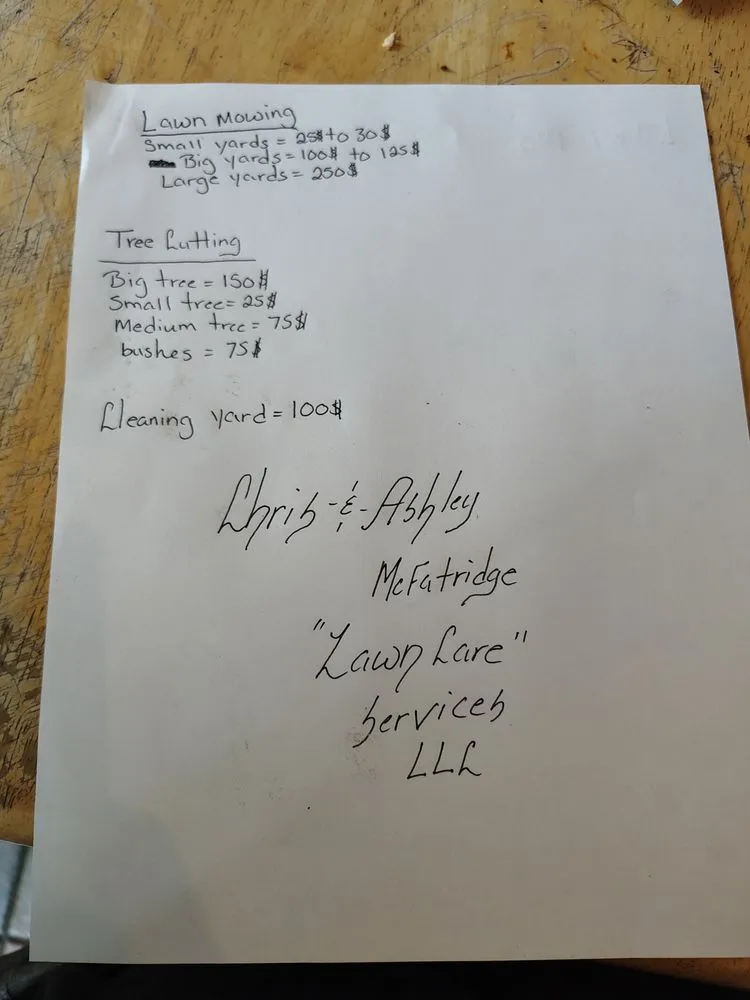 Lawn Mowing
Small yards = 25$ to 30$
Big yards = 100$ to 125$
Large yards = 250$
Tree Cutting
Big tree = 150$
Small tree = 25$
Medium tree = 75$
bushes = 75$
Cleaning yard = 100$
Chris -&- Ashley
McFatridge
"Lawn Care"
Services
LLC